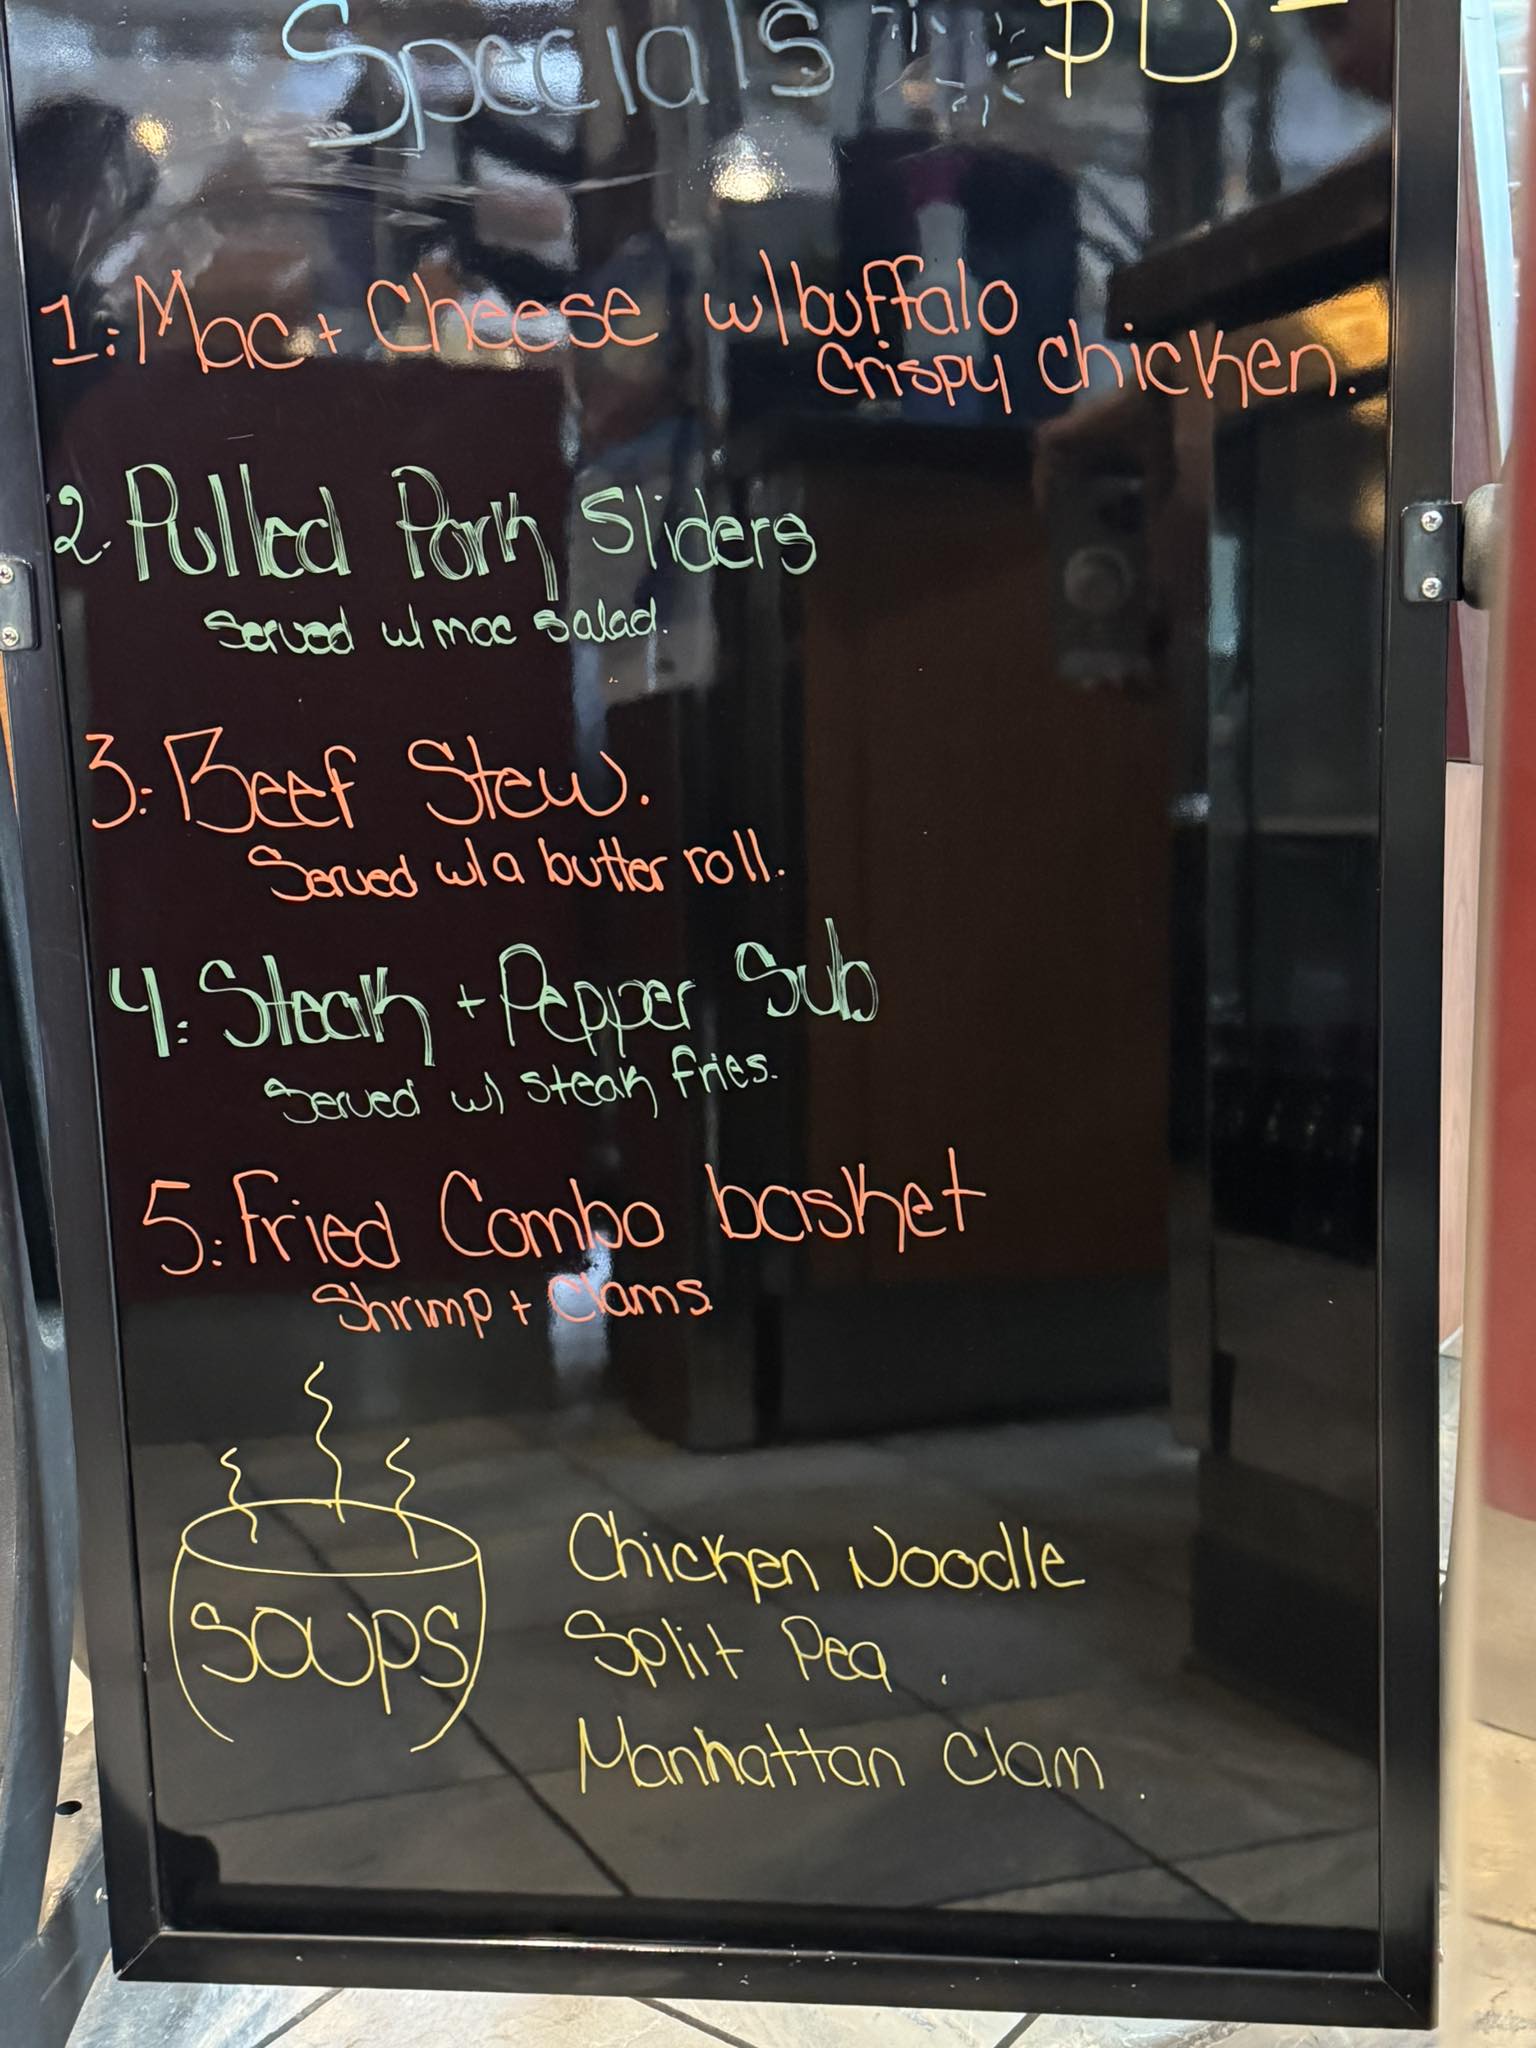 Specials
1: Mac + Cheese w/buffalo
crispy chicken.
2. Pulled Pork Sliders
Served w/ mac salad.
3: Beef Stew.
Served w/ a butter roll.
4: Steak + Pepper Sub
Served w/ steak fries.
5: Fried Combo basket
Shrimp + Clams.
SOUPS
Chicken Noodle
Split Pea
Manhattan Clam